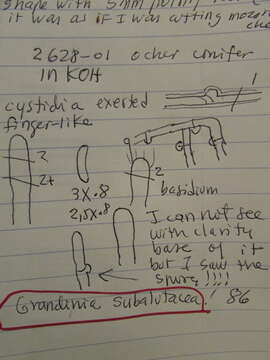 shape with 5mm
it was as if I was cutting mozar
che
2628-01 other conifer
in KOH
1
cystidia exerted
finger-like
2
2+
3x.8
2,5x.8
2
basidium
I can not see
with clarity
base of it
but I saw the
spurs!!!!
Grandinia subalutacea! 86